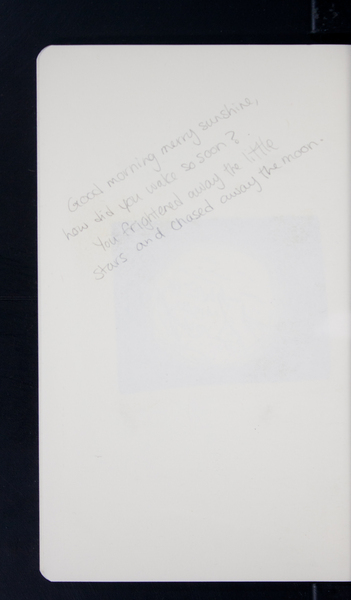 Good morning merry sunshine,
how did you wake so soon?
You frightened away the little
stars and chased away the moon.